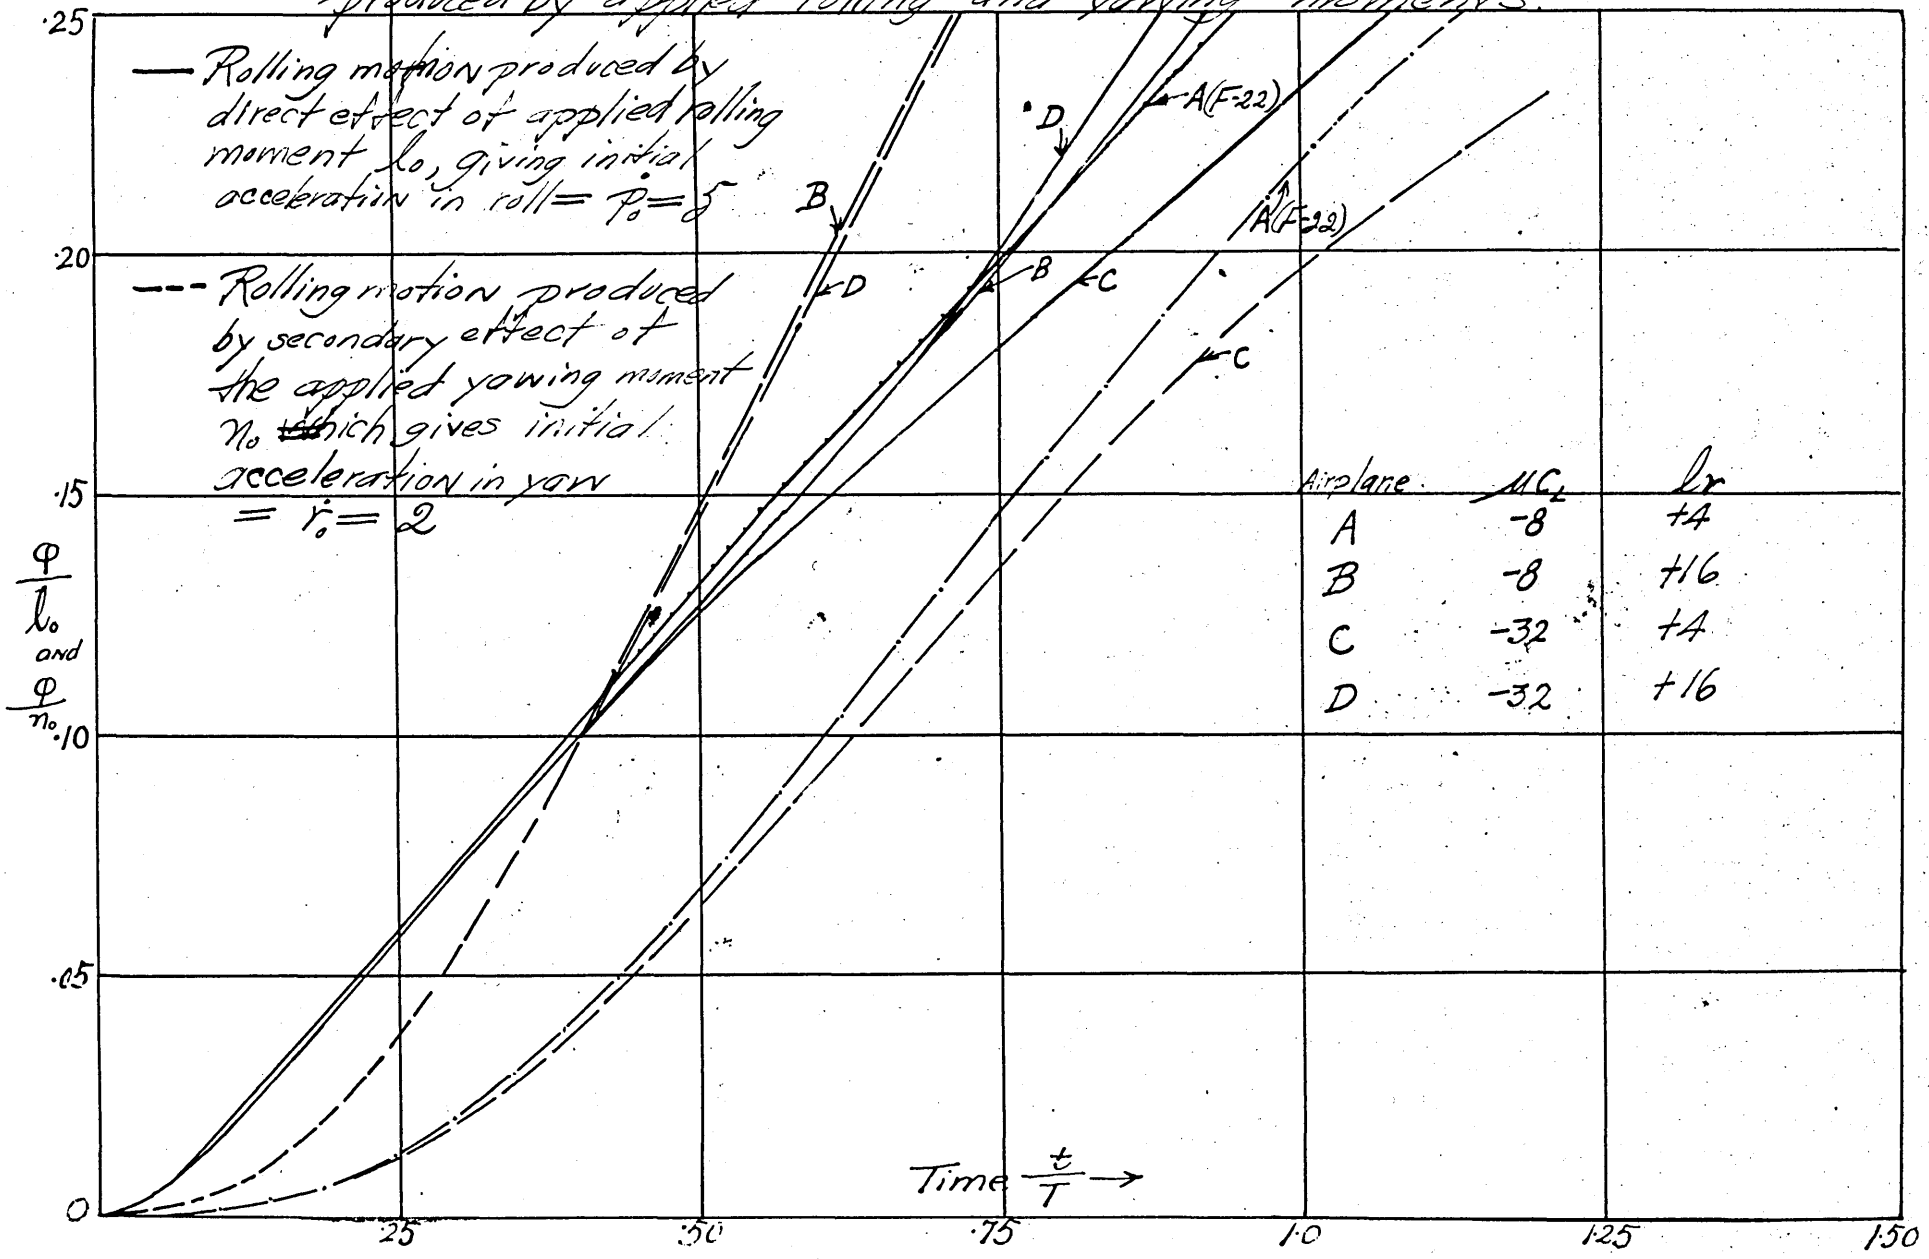 produced by applied rolling and yawing moments.
.25
— Rolling motion produced by
direct effect of applied rolling
moment l₀, giving initial
acceleration in roll = ṗ₀ = 5
--- Rolling motion produced
by secondary effect of
the applied yawing moment
n₀ which gives initial
acceleration in yaw
= ṙ₀ = 2
D
A(F-22)
B
A(F-22)
.20
D
B
C
C
.15
Airplane μC_L lr
A -8 +4
B -8 +16
C -32 +4
D -32 +16
φ/l₀
and
φ/n₀
.10
.05
Time t/T →
0
.25 .50 .75 1.0 1.25 1.50